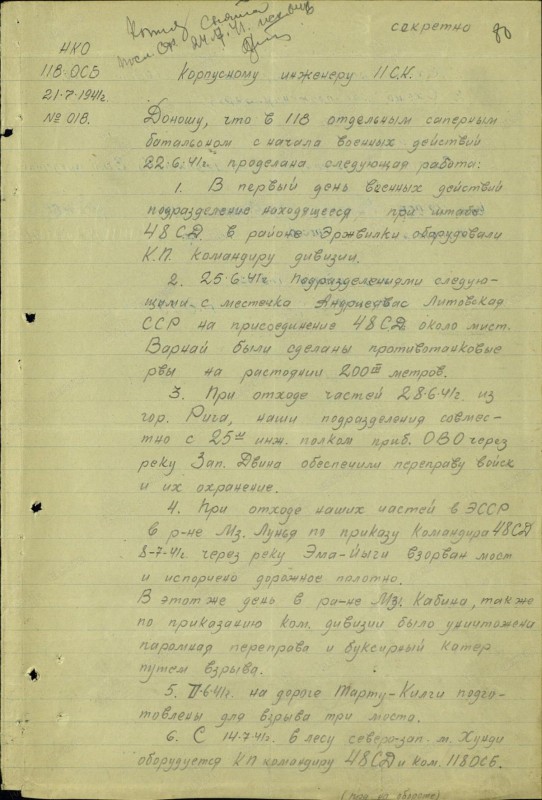 Копия снята
24.7.41.
секретно
80
НКО
118 ОСБ
21-7-1941г.
№ 018.
Корпусному инженеру 11 С.К.
Доношу, что в 118 отдельным саперным
батальоном с начала военных действий
22-6-41г проделана следующая работа:
1. В первый день военных действий
подразделение находящееся при штабе
48 С.Д. в районе Эржвилки оборудовали
К.П. командиру дивизии.
2. 25-6-41г. подразделениями следую-
щими с местечка Андриедвас Литовская
ССР на присоединение 48 С.Д. около мист.
Варнай были сделаны противотанковые
рвы на растоянии 200ᵐ метров.
3. При отходе частей 28-6-41г. из
гор. Рига, наши подразделения совмес-
тно с 25ᵐ инж. полком приб. ОВО через
реку Зап. Двина обеспечили переправу войск
и их охранение.
4. При отходе наших частей в ЭССР
в р-не Мз. Луньд по приказу командира 48 СД
8-7-41г. через реку Эма-Йыги взорван мост
и испорчено дорожное полотно.
В этот же день в ра-не Мз. Кабина, также
по приказанию ком. дивизии было уничтожена
паромная переправа и буксирный катер
путем взрыва.
5. 11-6-41г. на дороге Тарту-Килги подго-
товлены для взрыва три моста.
6. С 14-7-41г. в лесу северо-зап. м. Хунди
оборудуется КП командиру 48 СД и ком. 118 ОСБ.
(прод. на обороте)